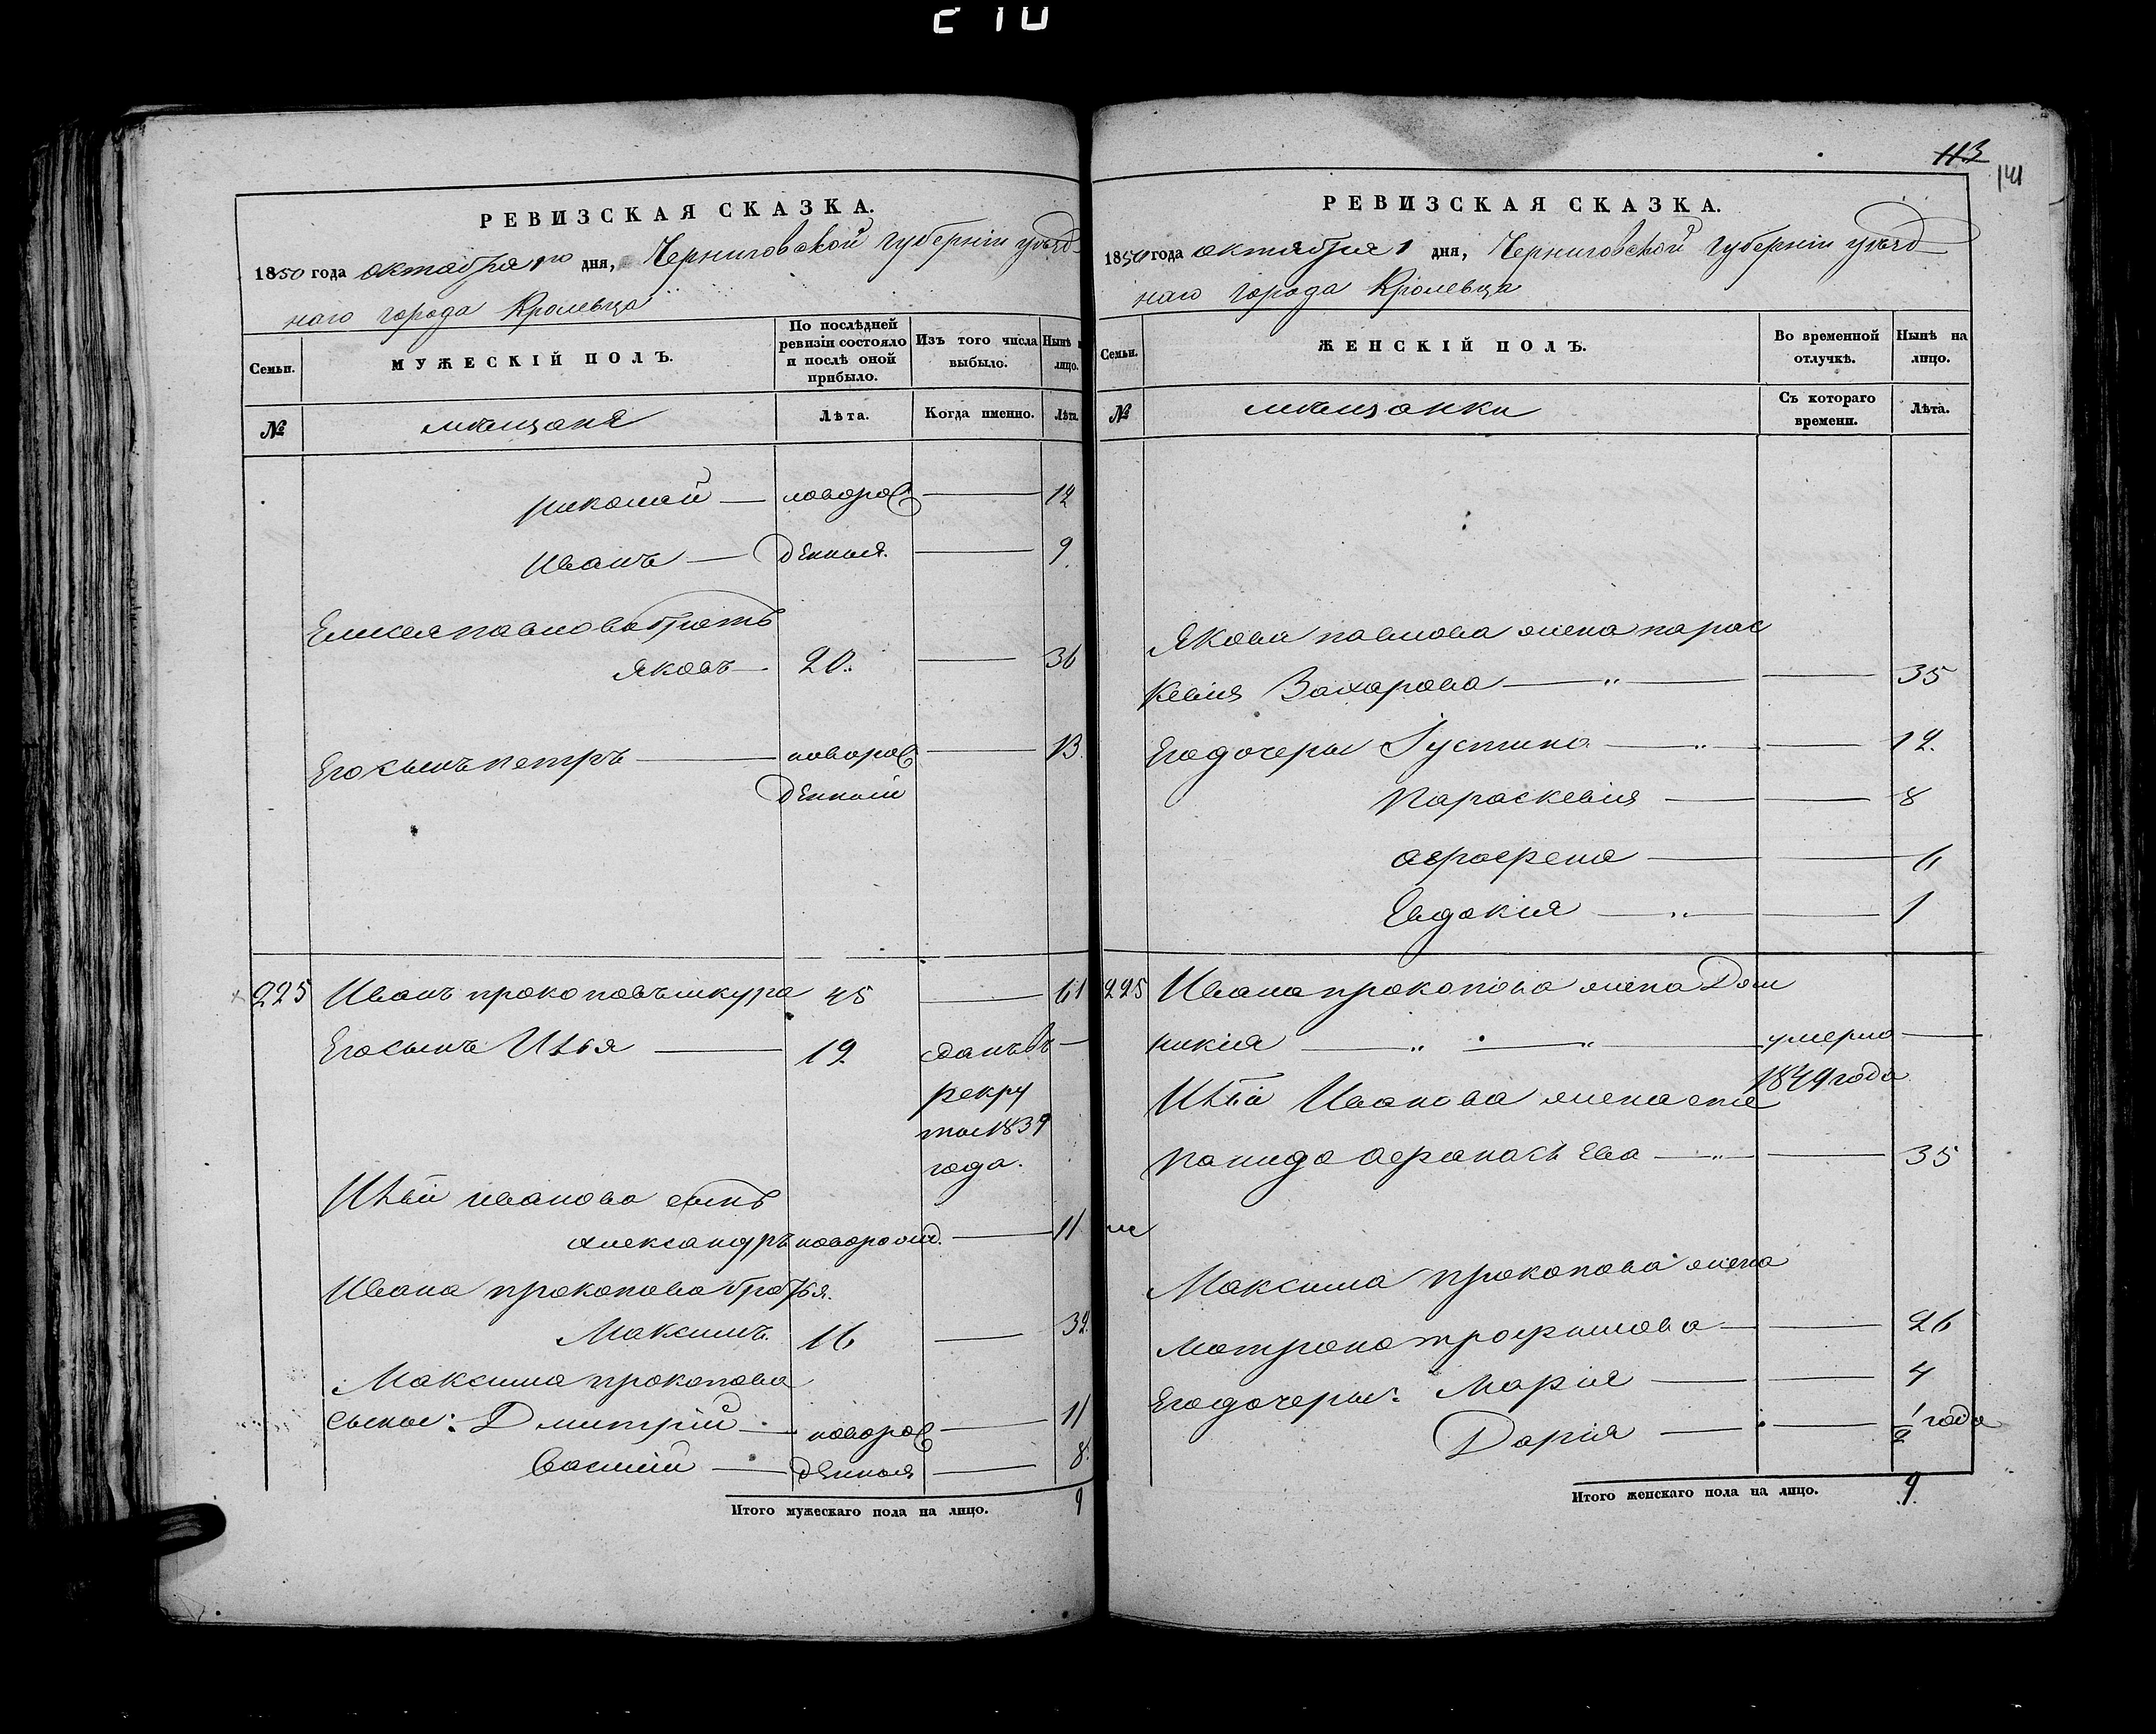 210
РЕВИЗСКАЯ СКАЗКА.
1850 года октября 1го дня, Черниговской губерніи уѣзд
наго города Кролевца
Семьи.
МУЖЕСКІЙ ПОЛЪ.
По послѣдней ревизіи состояло и послѣ оной прибыло.
Изъ того числа выбыло.
Нынѣ н лицо.
№
мѣщаня
Лѣта.
Когда именно.
Лѣта.
николай — новорож — 12
Иванъ — денныя. — 9.
Елисея павлова братъ
Яковъ — 20. — 36
Его сынъ петръ — новорож — 13.
денный
225 Иванъ прокоповъ шкура 45 — 61
Его сынъ Илья — 19. сданъ въ —
рекру
ты 1839
года.
Ильи иванова сынъ
александръ новорожд. — 11
Ивана прокопова братья.
Максимъ. 16 — 32.
Максима прокопова
сыны: Дмитрій — новорож — 11
василій — денныя — 8.
Итого мужескаго пола на лицо. 9
113
141
РЕВИЗСКАЯ СКАЗКА.
1850 года октября 1 дня, Черниговской губерніи уѣзд
наго города Кролевца
Семьи.
ЖЕНСКІЙ ПОЛЪ.
Во временной отлучкѣ.
Нынѣ на лицо.
№
мѣщанки
Съ котораго времени.
Лѣта.
Якова павлова жена парас
кевия Захарова — " — 35
Его дочеры Іустина — " — 12.
Параскевия — 8
афрофена — 6
Евдокия — " — 1
225 Ивана прокопова жена Дом
никия — " — " — умерла —
1849 года
Ильи Иванова жена сте
панида афанасьева — " — 35
Максима прокопова жена
матрона трофимова — 26
Его дочеры: Мария — 4
Дария — 1/2 года
Итого женскаго пола на лицо. 9.